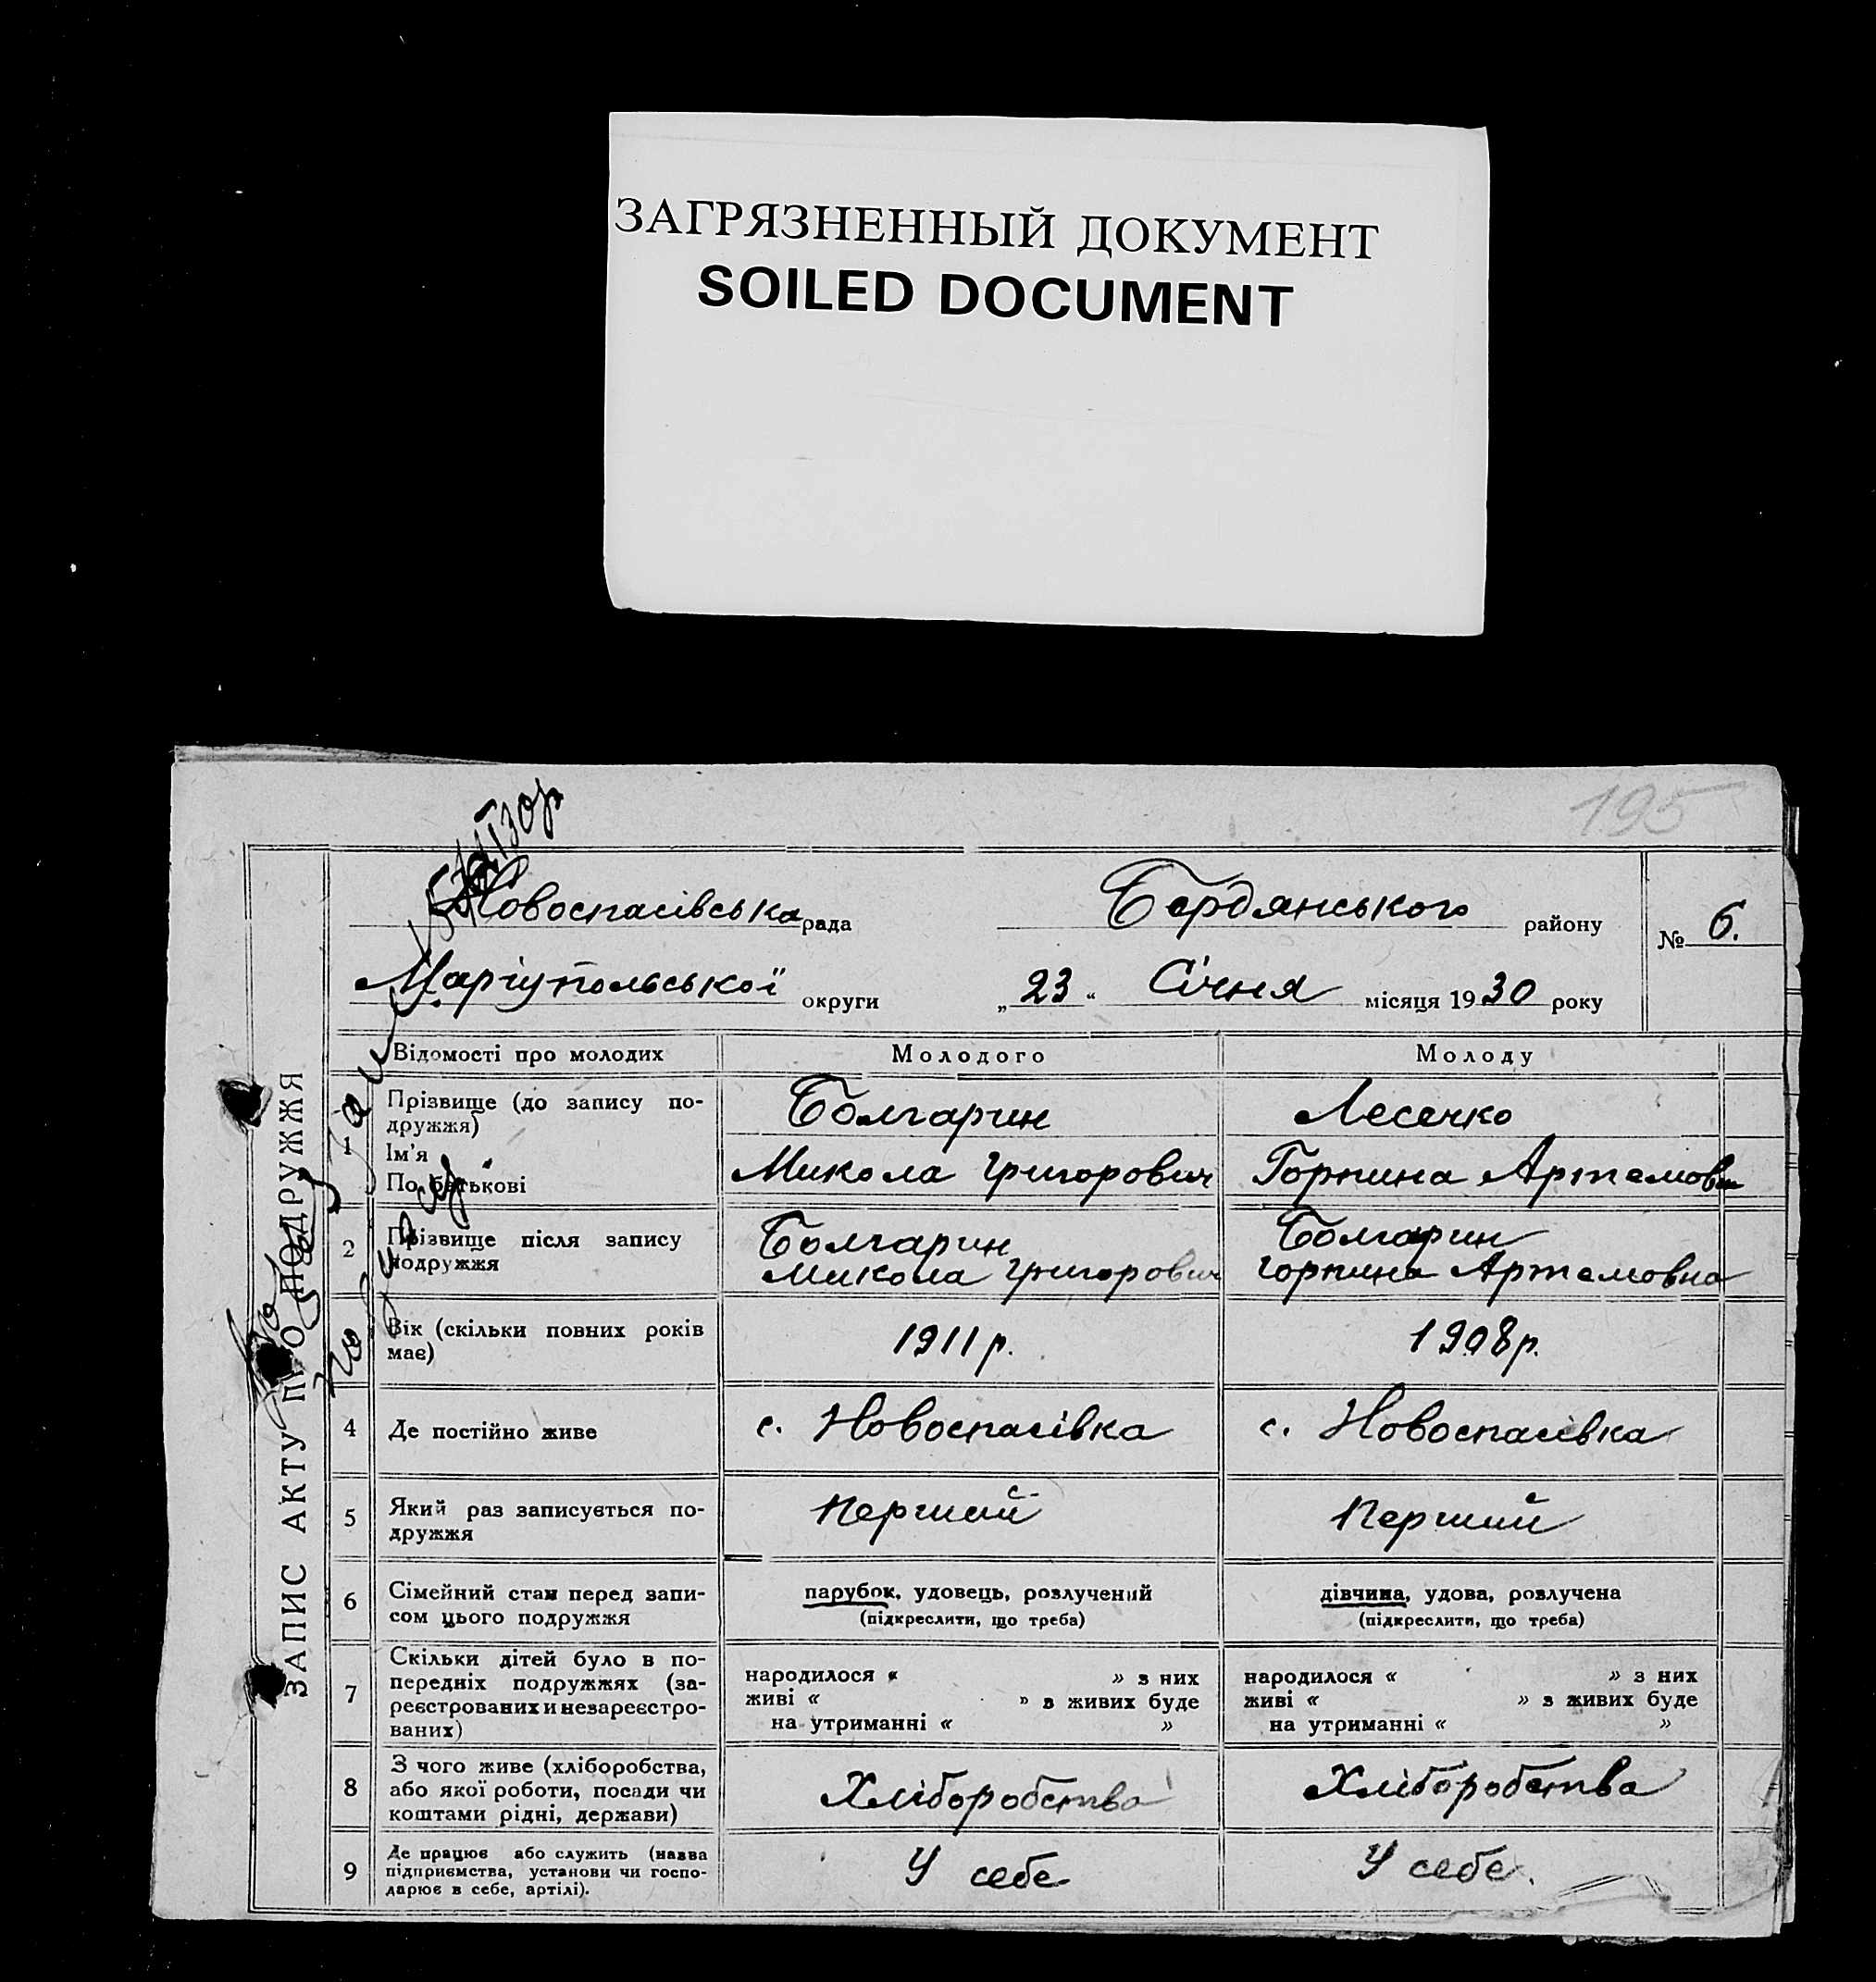 ЗАГРЯЗНЕННЫЙ ДОКУМЕНТ
SOILED DOCUMENT
195
ЗАПИС АКТУ ПРО ПОДРУЖЖЯ
Новоспасівська рада Бердянського району № 6.
Маріупольської округи „23“ Січня місяця 1930 року
Відомості про молодих Молодого Молоду
1 Прізвище (до запису по-
дружжя) Болгарин Лесечко
Ім'я
По батькові Микола Григорович Горпина Артемовн
2 Прізвище після запису
подружжя Болгарин Болгарин
Микола Григорович Горпина Артемовна
Вік (скільки повних років
має) 1911 р. 1908 р.
4 Де постійно живе с. Новоспасівка с. Новоспасівка
5 Який раз записується по-
дружжя Перший Перший
6 Сімейний стан перед запи-
сом цього подружжя парубок, удовець, розлучений дівчина, удова, розлучена
(підкреслити, що треба) (підкреслити, що треба)
7 Скільки дітей було в по-
передніх подружжях (за-
реєстрованих и незареєстро-
ваних)
народилося « » з них народилося « » з них
живі « » з живих буде живі « » з живих буде
на утриманні « » на утриманні « »
8 З чого живе (хліборобства,
або якої роботи, посади чи
коштами рідні, держави) Хліборобства Хліборобства
9 Де працює або служить (назва
підприємства, установи чи госпо-
дарює в себе, артілі). У себе У себе.